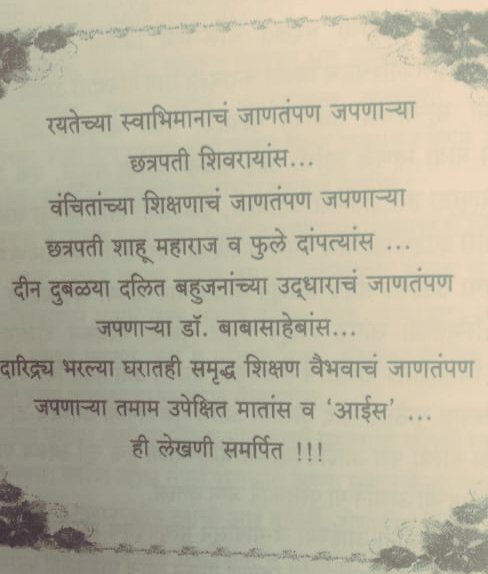 रयतेच्या स्वाभिमानाचं जाणतंपण जपणाऱ्या
छत्रपती शिवरायांस...
वंचितांच्या शिक्षणाचं जाणतंपण जपणाऱ्या
छत्रपती शाहू महाराज व फुले दांपत्यांस ...
दीन दुबळया दलित बहुजनांच्या उद्धाराचं जाणतंपण
जपणाऱ्या डॉ. बाबासाहेबांस...
दारिद्र्य भरल्या घरातही समृद्ध शिक्षण वैभवाचं जाणतंपण
जपणाऱ्या तमाम उपेक्षित मातांस व ‘आईस’ ...
ही लेखणी समर्पित !!!